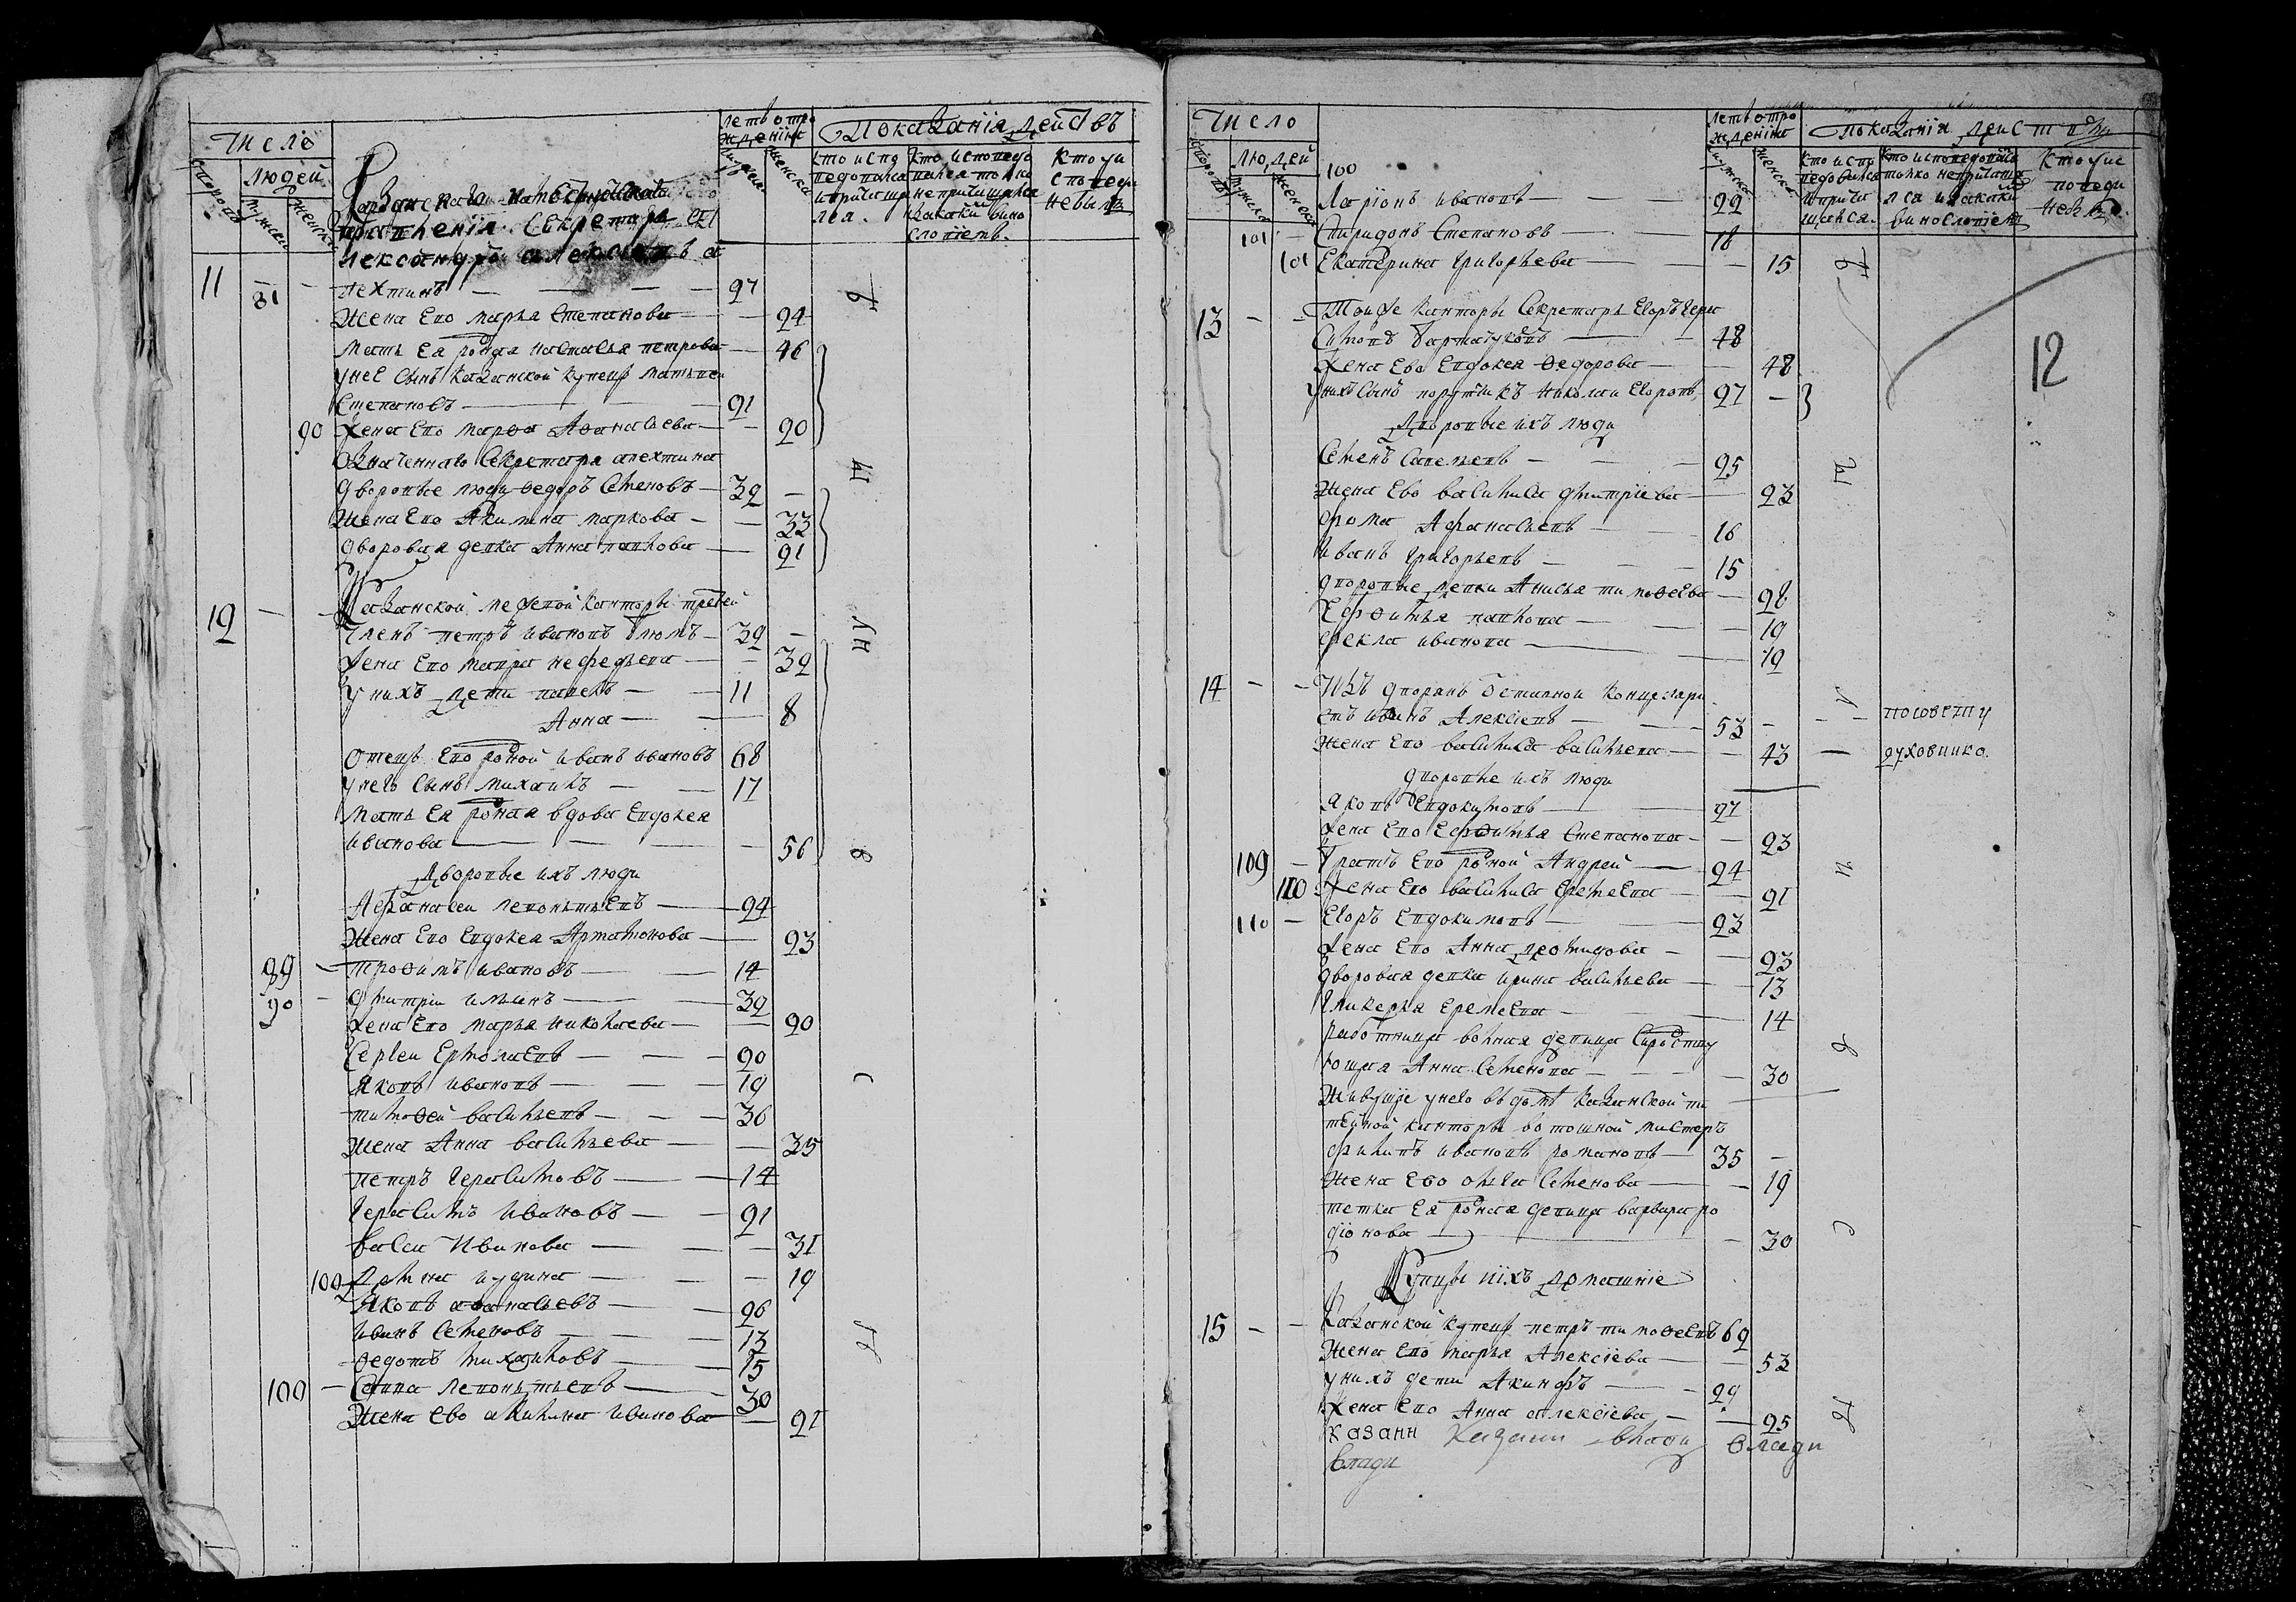 Число
Людей
летъ отро
жденіѧ
Показаніѧ Дейсвъ
споровъ
мужска
женска
мужска
женска
кто испо
ведовалсѧ
и причища
лсѧ.
Кто исповедо
валсѧ токмо
не причищалсѧ
и какой вино
словіемъ.
Кто у и
споведи
не былъ
правленія Секретарь
Александръ алексѣевъ а
11 — — лехтинъ — 27
81
Жена Ево марья Степанова — 24
мать Еѧ роднаѧ настасья петрова — 46
унеЕ сынъ казанской купецъ матвеи
Степановъ — 21
90 Жена Ево марѳа Аѳанасьева — 20
Означеннаго Секретарѧ алехтина
дворовые люди ѳедоръ Семеновъ — 32 —
Жена Ево Акилина маркова — 33
дворовая девка Анна павлова — 21
12 — — Казанской межевой канторы третей
Членъ петръ ивановъ блюмъ — 32 —
Жена Ево мавра нефедьева — 32
у нихъ дети павелъ — 11
Анна — 8
Отецъ Ево родной иванъ ивановъ 68
унего Сынъ михаилъ — 17
мать Еѧ роднаѧ вдова Евдокея
иванова — 56
Дворовые ихъ люди
Афанасеи леонтьЕвъ — 24
Жена Ево Евдокея Артамонова — 23
89 — троѳимъ ивановъ — 14
90 — дмитріи ильинъ — 32
Жена Ево марья николаева — 20
Сергеи ЕрмолаЕвъ — 20
Яковъ ивановъ — 19
тимоѳей васильевъ — 36
Жена Анна васильева — 35
петръ герасимовъ — 14
Герасимъ ивановъ — 21
васса Иванова — 31
100 Домна иудина — 19
Яковъ аѳанасьевъ — 26
иванъ Семеновъ — 13
ѳедотъ михайловъ — 15
100 — Савва леонтьевъ — 30
Жена Ево акилина иванова — 21
Число
Людей
летъ отро
жденіѧ
показаніѧ дейст
споровъ
мужска
женска
мужска
женска
Кто испо
ведовалсѧ
и причи
щалсѧ.
Кто исповедовал
токмо не причаща
лсѧ и какимъ
винословіемъ
Кто у ис
поведи
не былъ.
100
Ларіонъ ивановъ — 22
101 — Спиридонъ Степановъ — 18
101 Екатерина григорьева — 15
12
13 — — Тоиже канторы Секретарь Егоръ гера
симовъ бармашуковъ — 48
Жена Ево Евдокея Ѳедорова — 48
унихъ Сынъ порутчикъ николаи Егоровъ 27 —
Дворовые ихъ люди
Семенъ Савельевъ — 25
Жена Ево василиса дмитріева — 23
фома Афанасьевъ — 16
Иванъ григорьевъ — 15
дворовые девки Анисья тимоѳеева — 28
Еѳѳимья павлова — 19
фекла иванова — 19
14 — — Изъ дворянъ Земской канцеляри
стъ иванъ Алексіевъ — 53 —
Жена Ево василиса васильева — 43 —
посовету
духовника.
дворовые ихъ люди
Яковъ Евдокимовъ — 27
Жена Ево Ефѳимья Степанова — 23
109 — братъ Ево родной Андрей — 24
110 Жена Ево василиса ЕремеЕва — 21
110 — Егоръ Евдокимовъ — 23
Жена Ево Анна демидова — 23
дворовая девка ирина васильева — 13
гликерья ЕремеЕва — 14
работница волная девица
Анна Семенова — 30
Живущіе унего въ доме казанской пи
тейной канторы ботошной мастеръ
филипъ ивановъ романовъ — 35 —
Жена Ево ольга Семенова — 19
тетка Еѧ роднаѧ девица варвара ро
діонова — 30
Купцы иихъ Домашніе
15 — — Казанской купецъ петръ тимоѳеевъ 69
Жена Ево марья Алексіева — 53
унихъ дети Акинфъ — 29
Жена Ево Анна алексіева — 25
казанн Казани влади влади
влади